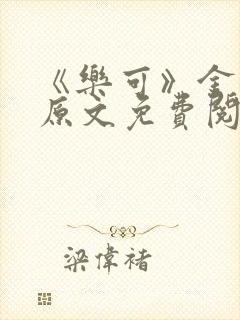 《樂可》金
原文免費閱
梁偉褚